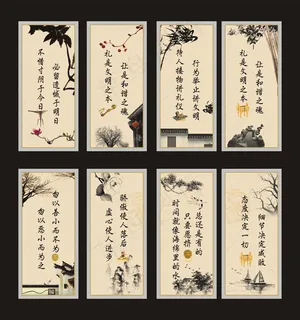 不惜寸阴于今日
必留遗憾于明日
礼是文明之本
让是和谐之魂
待人接物讲礼仪
行为举止讲文明
礼是文明之本
让是和谐之魂
勿以恶小而为之
勿以善小而不为
虚心使人进步
骄傲使人落后
时间就像海绵里的水
只要愿挤
总还是有的
态度决定一切
细节决定成败